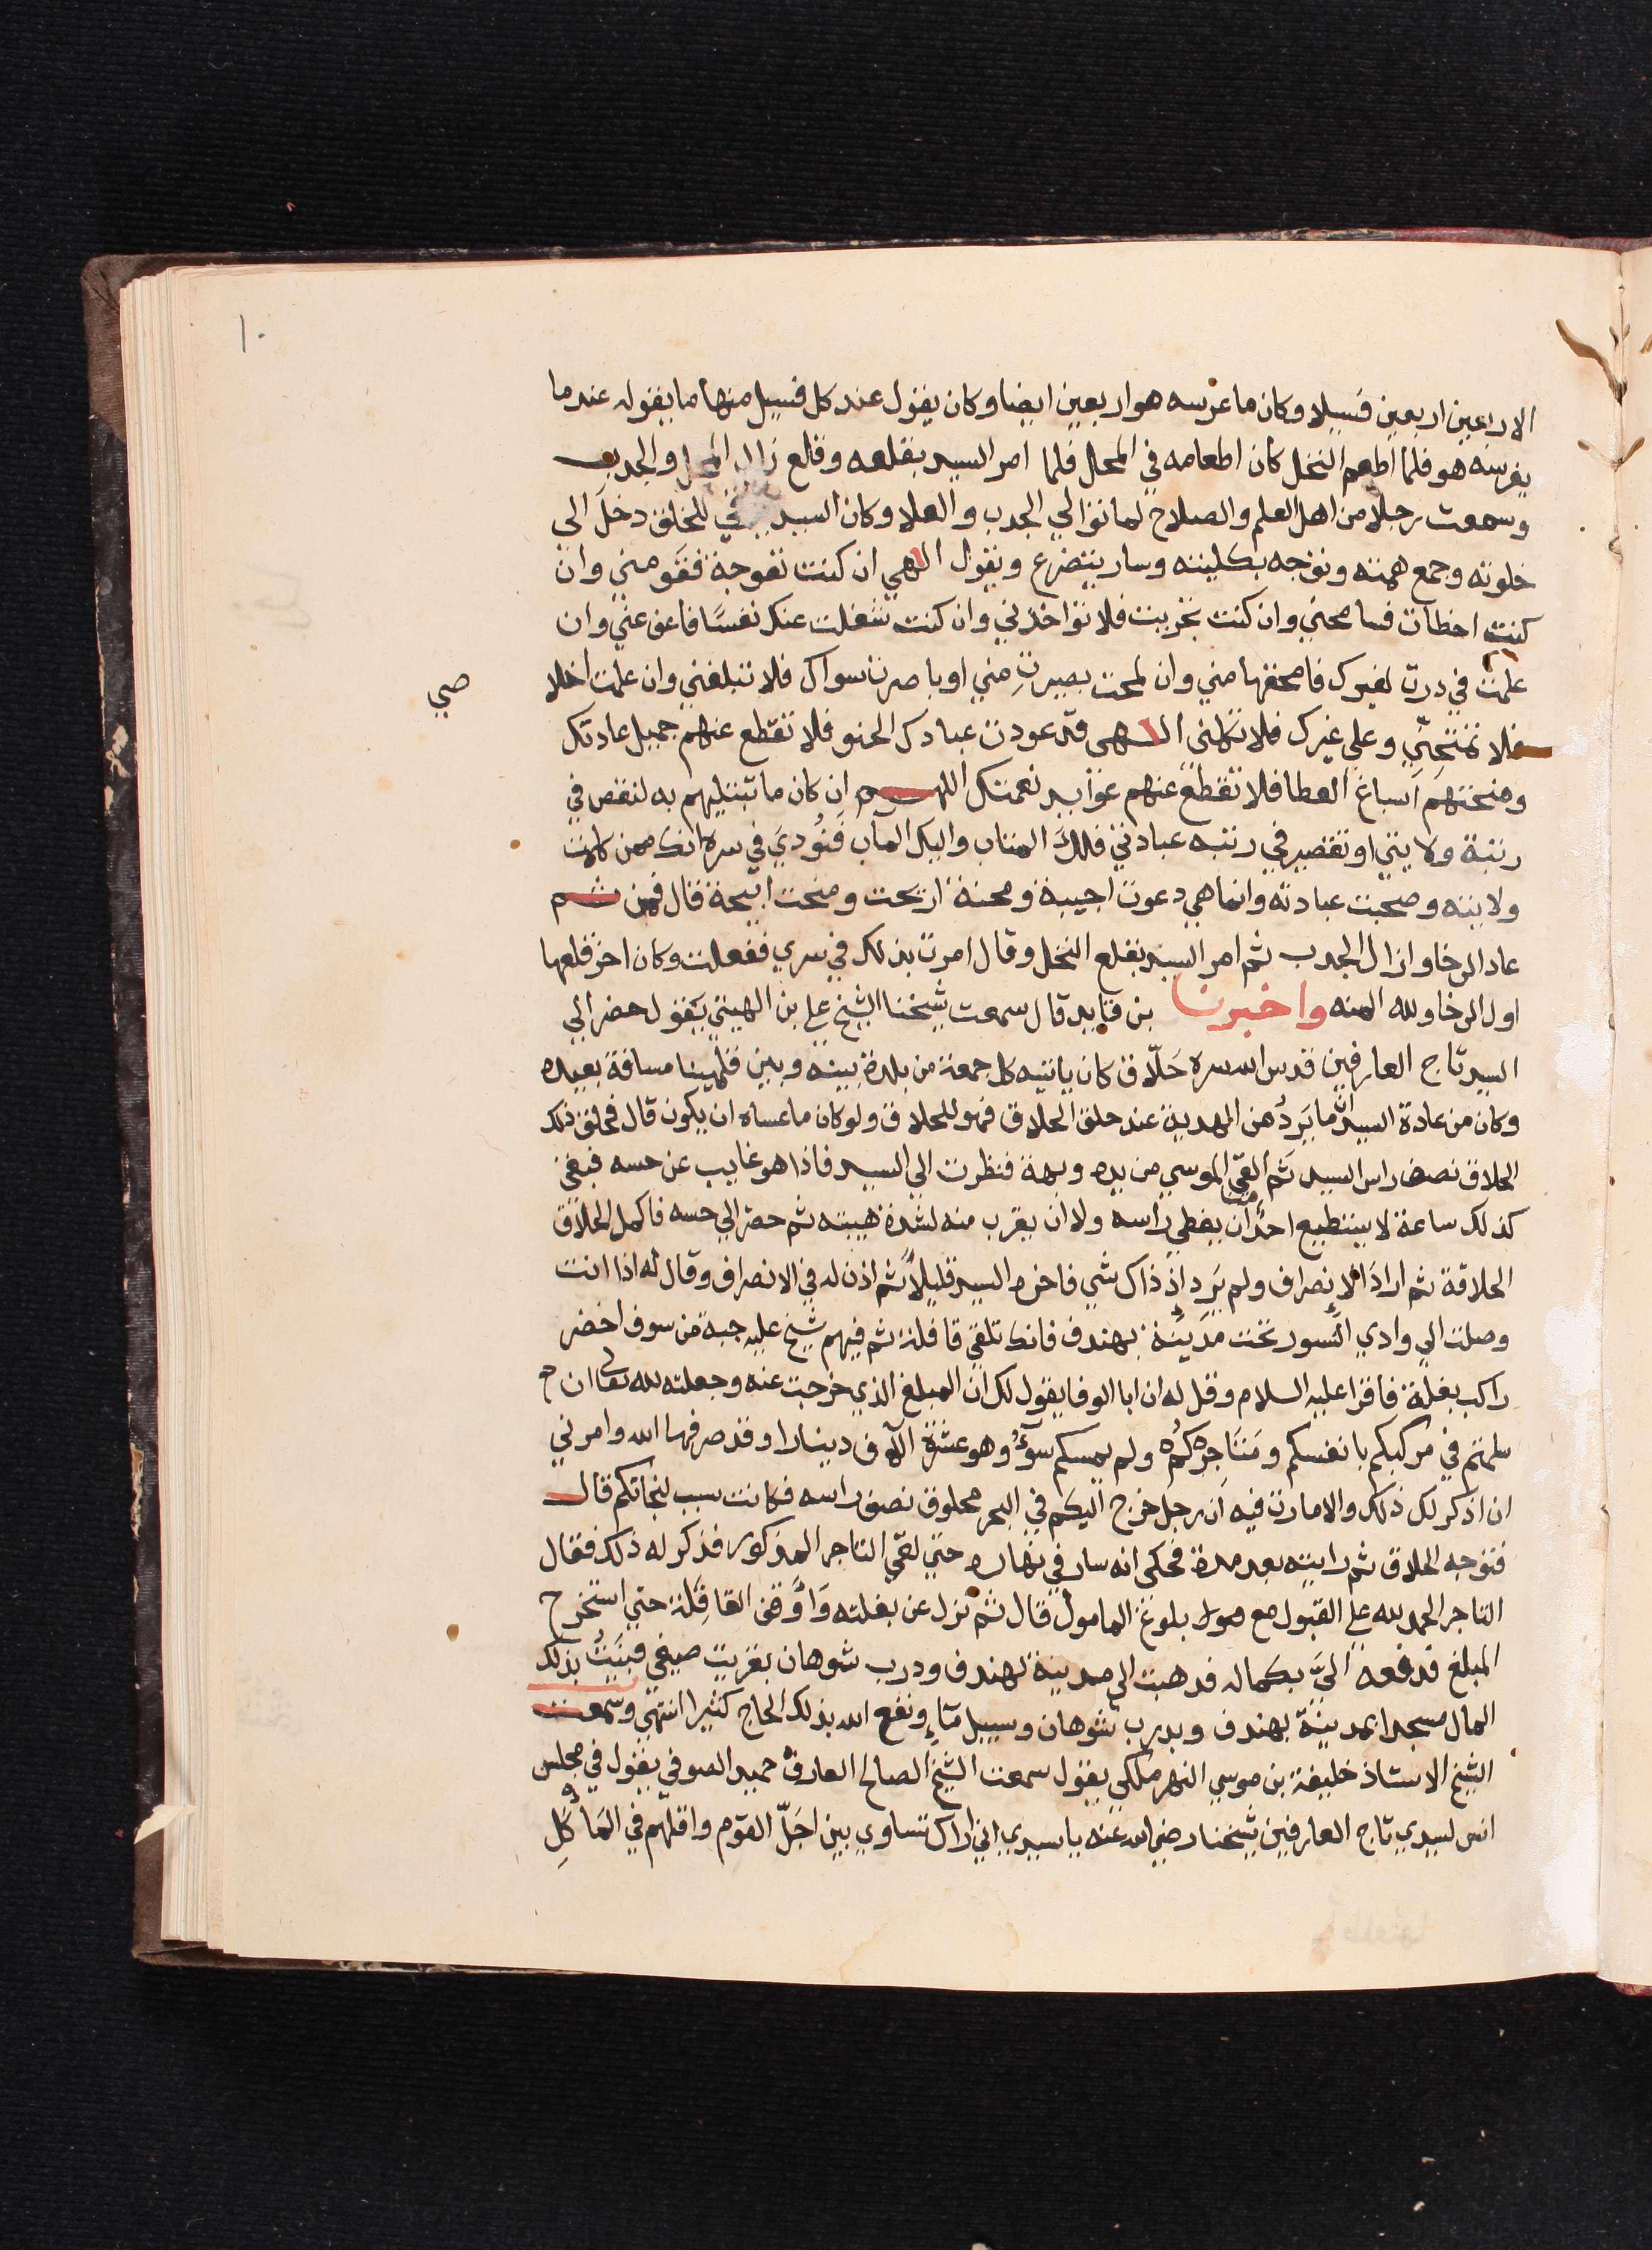 ١٠
الاربعين اربعين فسيلا وكان ما غرسه هو اربعين ايضا وكان يقول عند كل فسيل منها ما يقوله عند ما
يغرسه هو فلما اطعم النخل كان اطعامه في المحل فلما امر السيد بقلعه وقلع زال المحل والجدب
وسمعت رجلا من اهل العلم والصلاح لما توالي الجدب والغلا وكان السيد للخلق دخل الى
خلوته وجمع همته وتوجه بكليته وسار يتضرع ويقول الهي ان كنت تعوجة فقومني وان
كنت اخطات فسامحني وان كنت تجريت فلا تواخذني وان كنت شغلت عنك نفسًا فاعف عني وان
علمت في ذرت لغيرك فامحقها مني وان لمحت بصيرتِ مني او باصرت سواك فلا تبلغني وان علمت اخلا
صي
فلا تمتحني وعلي غيرك فلا تكلني الهي قد عودت عبادك الحنو فلا تقطع عنهم جميل عادتك
ومنحتهم اسباغ العطا فلا تقطع عنهم عوايد نعمتك اللهم ان كان ما تبتليهم به لنقص في
رتبة ولايتي او تقصير في رتبه عبادتي فلك المتاب واليك الماب فنُودي في سره انك ممن كملت
ولايته وصحبت عبادته وانما هي دعوت اجيبة ومحنة ازيحت ومنحت ابيحة قال فمن ثم
عاد الرخا وازال الجدب ثم امر السيد بقلع النخل وقال امرت بذلك في سري ففعلت وكان اخر قلعها
اول الرخا ولله المنه واخبرنا بن قايد قال سمعت شيخنا الشيخ علي بن الهيتي يقول حضر الي
السيد تاج العارفين قدس الله سره حَلّاق كان ياتيه كل جمعة من بلدة بينه وبين قلمينا مسافة بعيده
وكان من عادة السيد انّ ما يَرِدُ من الهدية عند حلق الحلاق فهو للحلاق ولو كان ما عساه ان يكون قال فحلق ذلك
الحلاق نصف راس السيد ثم القي الموسي من يده وبهة فنظرت الي السيد فاذا هو غايب عن حسه فبقي
كذلك ساعة لا يستطيع احدًا منا ان يغطي راسه ولا ان يقرب منه لشدة هيبته ثم حضر الي حسه فاكمل الحلاق
الحلاقة ثم ارادَ الانصراف ولم يَرِد اذ ذاك شي فاخره السيد قليلًا ثم اذن له في الانصراف وقال له اذا انت
وصلت الي وادي النسور تحت مدينة بهندف فانك تلقي قافلة ثم فيهم شيخ عليه جبة من سوف اخضر
راكب بغلة فاقرا عليه السلام وقل له ان ابا الوفا يقول لك ان المبلغ الذي خرجت عنه وجعلته لله تعالى ان
سلمتم في مركبكم بانفسكم ومَتَاجِركُم ولم يمسكم سوءٌ وهو عشرة الاف دينارا وقد صرفها الله وامرني
ان اذكر لك ذلك والامارت فيه ان رجل خرج اليكم في البحر محلوق نصف راسه فكانت سبب لنجاتكم قال
فتوجه الحلاق ثم رايته بعد مدة فحكى انه سار في نهاره حتي لقي التاجر المذكور فذكر له ذلك فقال
التاجر الحمد لله علي القبول مع بلوغ المامول قال ثم نزل عن بغلته وَاوقف القافلة حتي استخرج
المبلغ فدفعه اليَّ بكماله فدهبت الي مدينة بهندف ودرب شوهان بقريت صيفي فبَنيْتُ بذلك
المال مسجدا بمدينة بهندف وبدرب شوهان وسبيل مَاءٍ ونفع الله بذلك الحاج كثيرا انتهي وسمعت
الشيخ الاستاذ خليفة بن موسي النهرملكي يقول سمعت الشيخ الصالح العارف حميد الصوفي يقول في مجلس
انس لسيدي تاج العارفين شيخنا رضي الله عنه يا سيدي اني اراك تساوي بين اجَلّ القوم واقلّهم في المَاكَلِ